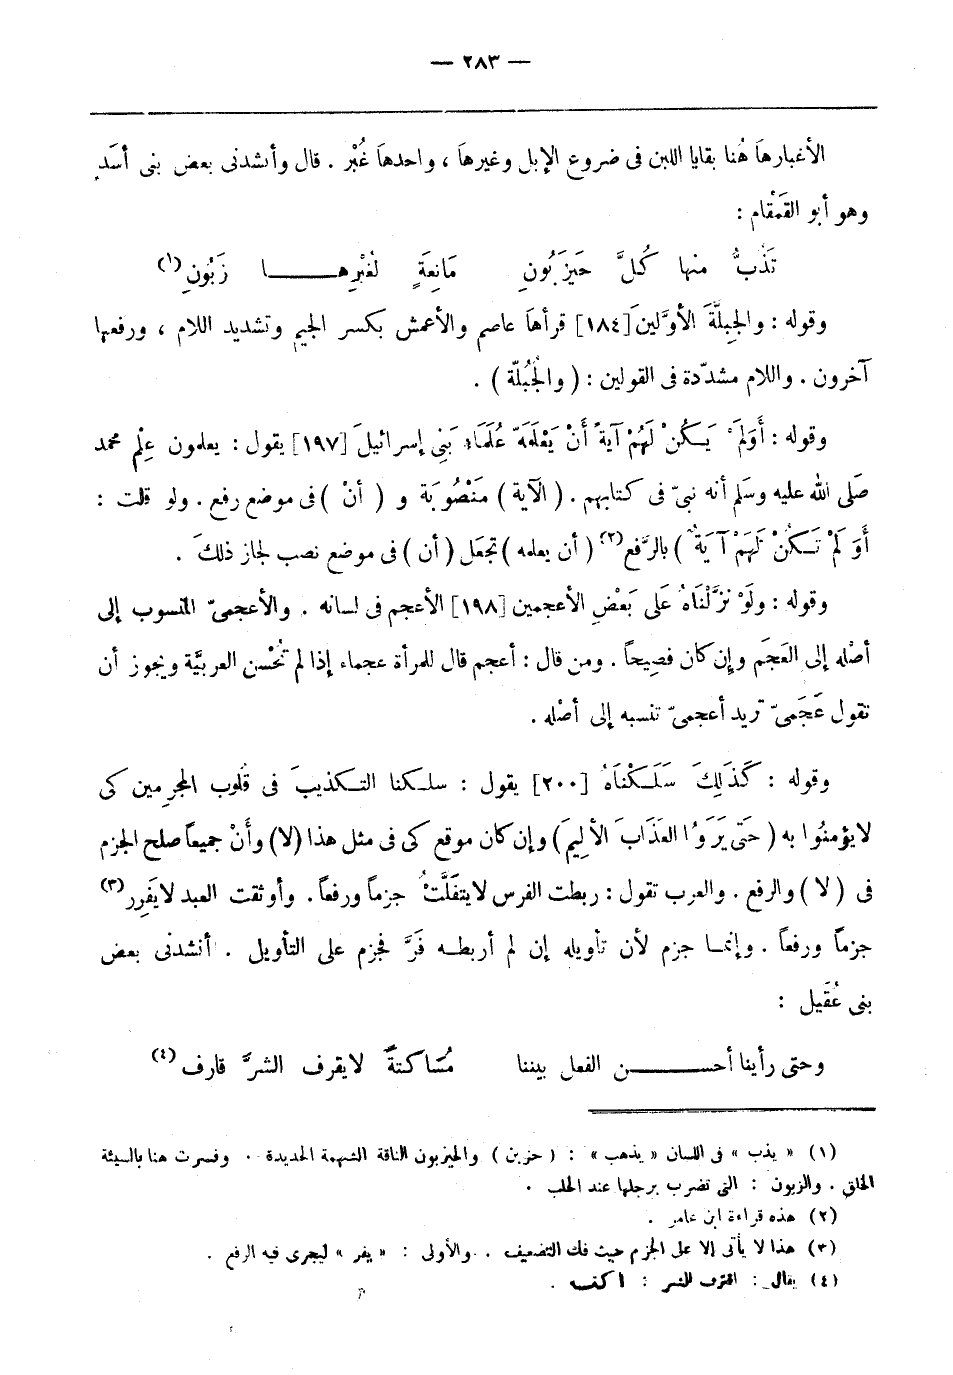 — ٢٨٣ —
الأغبارهَا هُنا بقايا اللبن فى ضروع الإبل وغيرهَا ، واحدهَا غُبْر . قال وأنشدنى بعض بنى أسَد
وهو أبو القَمْقام :
تَذُبُّ منها كُلَّ حَيزَبُونِ مَانِعَةٍ لغُبْرِهـــا زَبُونِ (١)
وقوله : والجِبِلَّةَ الأوَّلين [١٨٤] قرأهَا عاصم والأعمش بكسر الجيم وتشديد اللام ، ورفعها
آخرون . واللام مشدّدة فى القولين : ( والجُبُلّة ) .
وقوله : أَوَلَمْ يَكُنْ لَهُمْ آيةً أَنْ يَعْلَمَهُ عُلَمَاء بَنِى إسرائيلَ [١٩٧] يقول : يعلمون عِلْم محمد
صَلى الله عليه وسَلم أنه نبىّ فى كتابهم . ( الآية ) مَنْصُوبَة و ( أنْ ) فى موضع رفع . ولو قلت :
أَوَ لَمْ تَكُنْ لَهَمْ آيَةٌ ) بالرَّفع (٢) ( أن يعلمه ) تجعَل ( أن ) فى موضع نصب لجاز ذلكَ .
وقوله : ولَوْ نزَّلْنَاهُ عَلى بَعْضِ الأعجمين [١٩٨] الأعجم فى لسانه . والأعجمىّ المنسوب إلى
أصْله إلى العَجَم وإن كان فصِيحاً . ومن قال : أعجم قال للمرأة عجماء إذا لم تُحْسن العربيَّة ويجوز أن
تقول عَجَمىّ تريد أعجمىّ تنسبه إلى أصْله .
وقوله : كَذَلِكَ سَلَكْنَاهُ [٢٠٠] يقول : سلكنا التكذيبَ فى قلوب المجرمين كى
لا يؤمنُوا به ( حَتى يَرَوُا العَذَابَ الألِيَم ) وإن كان موقع كى فى مثل هذا (لا) وأَنْ جميعاً صلح الجزم
فى ( لا ) والرفع . والعرب تقول : ربطت الفرس لا يتفَلَّتُْ جزماً ورفعاً . وأوثقت العبد لا يَفرِر (٣)
جزماً ورفعاً . وإنما جزم لأن تأويله إن لم أربطه فَرَّ فجزم على التأويل . أنشدنى بعض
بنى عُقَيل :
وحتى رأينا أحســـن الفعل بيننا مُسَاكتةً لا يقرف الشرَّ قارف (٤)
(١) « يذب » فى اللسان « يذهب » : ( حزبن ) والحيزبون الناقة الشهمة الحديدة . وفسرت هنا بالسيئة
الخلق . والزبون : التى تضرب برجلها عند الحلب .
(٢) هذه قراءة ابن عامر .
(٣) هذا لا يأتى إلا على الجزم حيث فك التضعيف . والأولى : « يفر » ليجرى فيه الرفع .
(٤) يقال : اقترف الشر : اكتسبه .